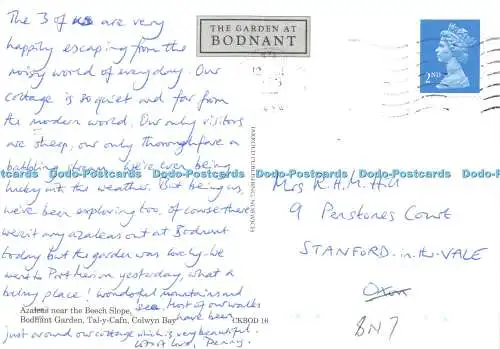 The 3 of us are very
happily escaping from the
noisy world of everyday. Our
cottage is so quiet and far from
the modern world. Our only visitors
are sheep, our only thoroughfare a
babbling stream. We've even being
lucky with the weather. But being us,
we've been exploring too. Of course there
weren't any azaleas out at Bodnant
today but the garden was lovely. We
went to Portmerion yesterday, what a
balmy place! Wonderful mountains and
sea. Most of our walks
have been
just around our cottage which is very beautiful.
Lots of love, Penny.
Azaleas near the Beech Slope,
Bodnant Garden, Tal-y-Cafn, Colwyn Bay
CKBOD 16
THE GARDEN AT
BODNANT
JARROLD PUBLISHING, NORWICH
2ND
Mrs R.H.M. Hill
9 Penstones Court
STANFORD-in-the-VALE
Oxon
8N7
Dodo-Postcards Dodo-Postcards Dodo-Postcards Dodo-Postcards